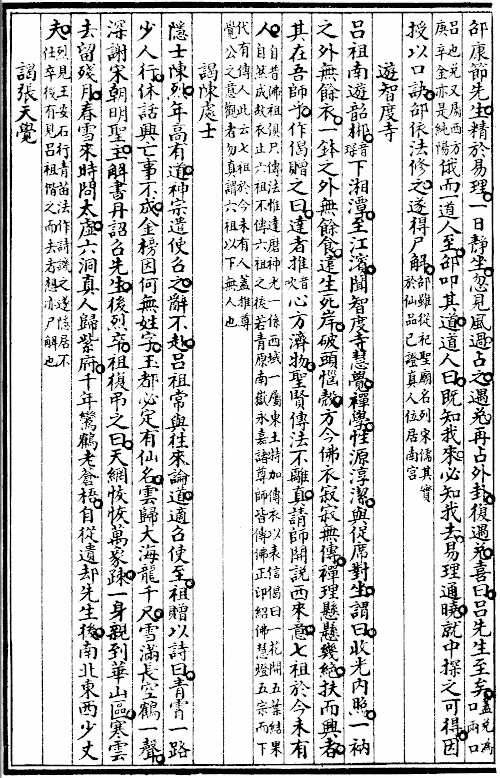 邵康節先生精於易理一日靜坐忽見風過占之遇兌再占外卦復遇兌喜曰呂先生至矣蓋兌為口兩口
呂也兌又屬西方庚辛金亦是純陽俄而一道人至邵叩其道道人曰既知我來必知我去易理通曉就中探之可得因
授以口訣邵依法修之遂得尸解邵雖從祀聖廟名列宋儒其實於仙品已證真人位居南宮
遊智度寺
呂祖南遊韶郴音琛下湘潭至江濱聞智度寺慧覺禪學性源淳潔與從席對坐謂曰收光內照一衲
之外無餘衣一鉢之外無餘食達生死岸破頭惱殼方今佛衣寂寂無傳禪理懸懸幾絕扶而興者
其在吾師乎作偈贈之曰達者推心方濟物聖賢傳法不離真請師開說西來意七祖於今未有
人自昔佛祖俱只傳法惟達磨神光一係西域一屬東土特加傳衣以表信偈曰一花開五葉結果自然成故衣止六祖不傳六祖之後若青原南嶽永嘉諸尊師皆傳佛正印紹佛慧燈五宗而下
代有傳人此云七祖於今未有人蓋推尊覺公之意觀者勿真謂六祖以下無人也
謁陳處士
隱士陳烈年高有道神宗遣使召之辭不赴呂祖常與往來論道適召使至祖贈以詩曰青霄一路
少人行休話興亡事不成金榜因何無姓字玉都必定有仙名雲歸大海龍千尺雪滿長空鶴一聲
深謝宋朝明聖主解書丹詔召先生後烈卒祖復弔之曰天網恢恢萬象疎一身親到華山區寒雲
去留殘月春雪來時問太虛六洞真人歸紫府千年鸞鶴老蒼梧自從遺却先生後南北東西少丈
夫烈見王安石行青苗法作詩譏之遂隱居不仕卒後有見呂祖偕之而去者想亦尸解也
謁張天覺